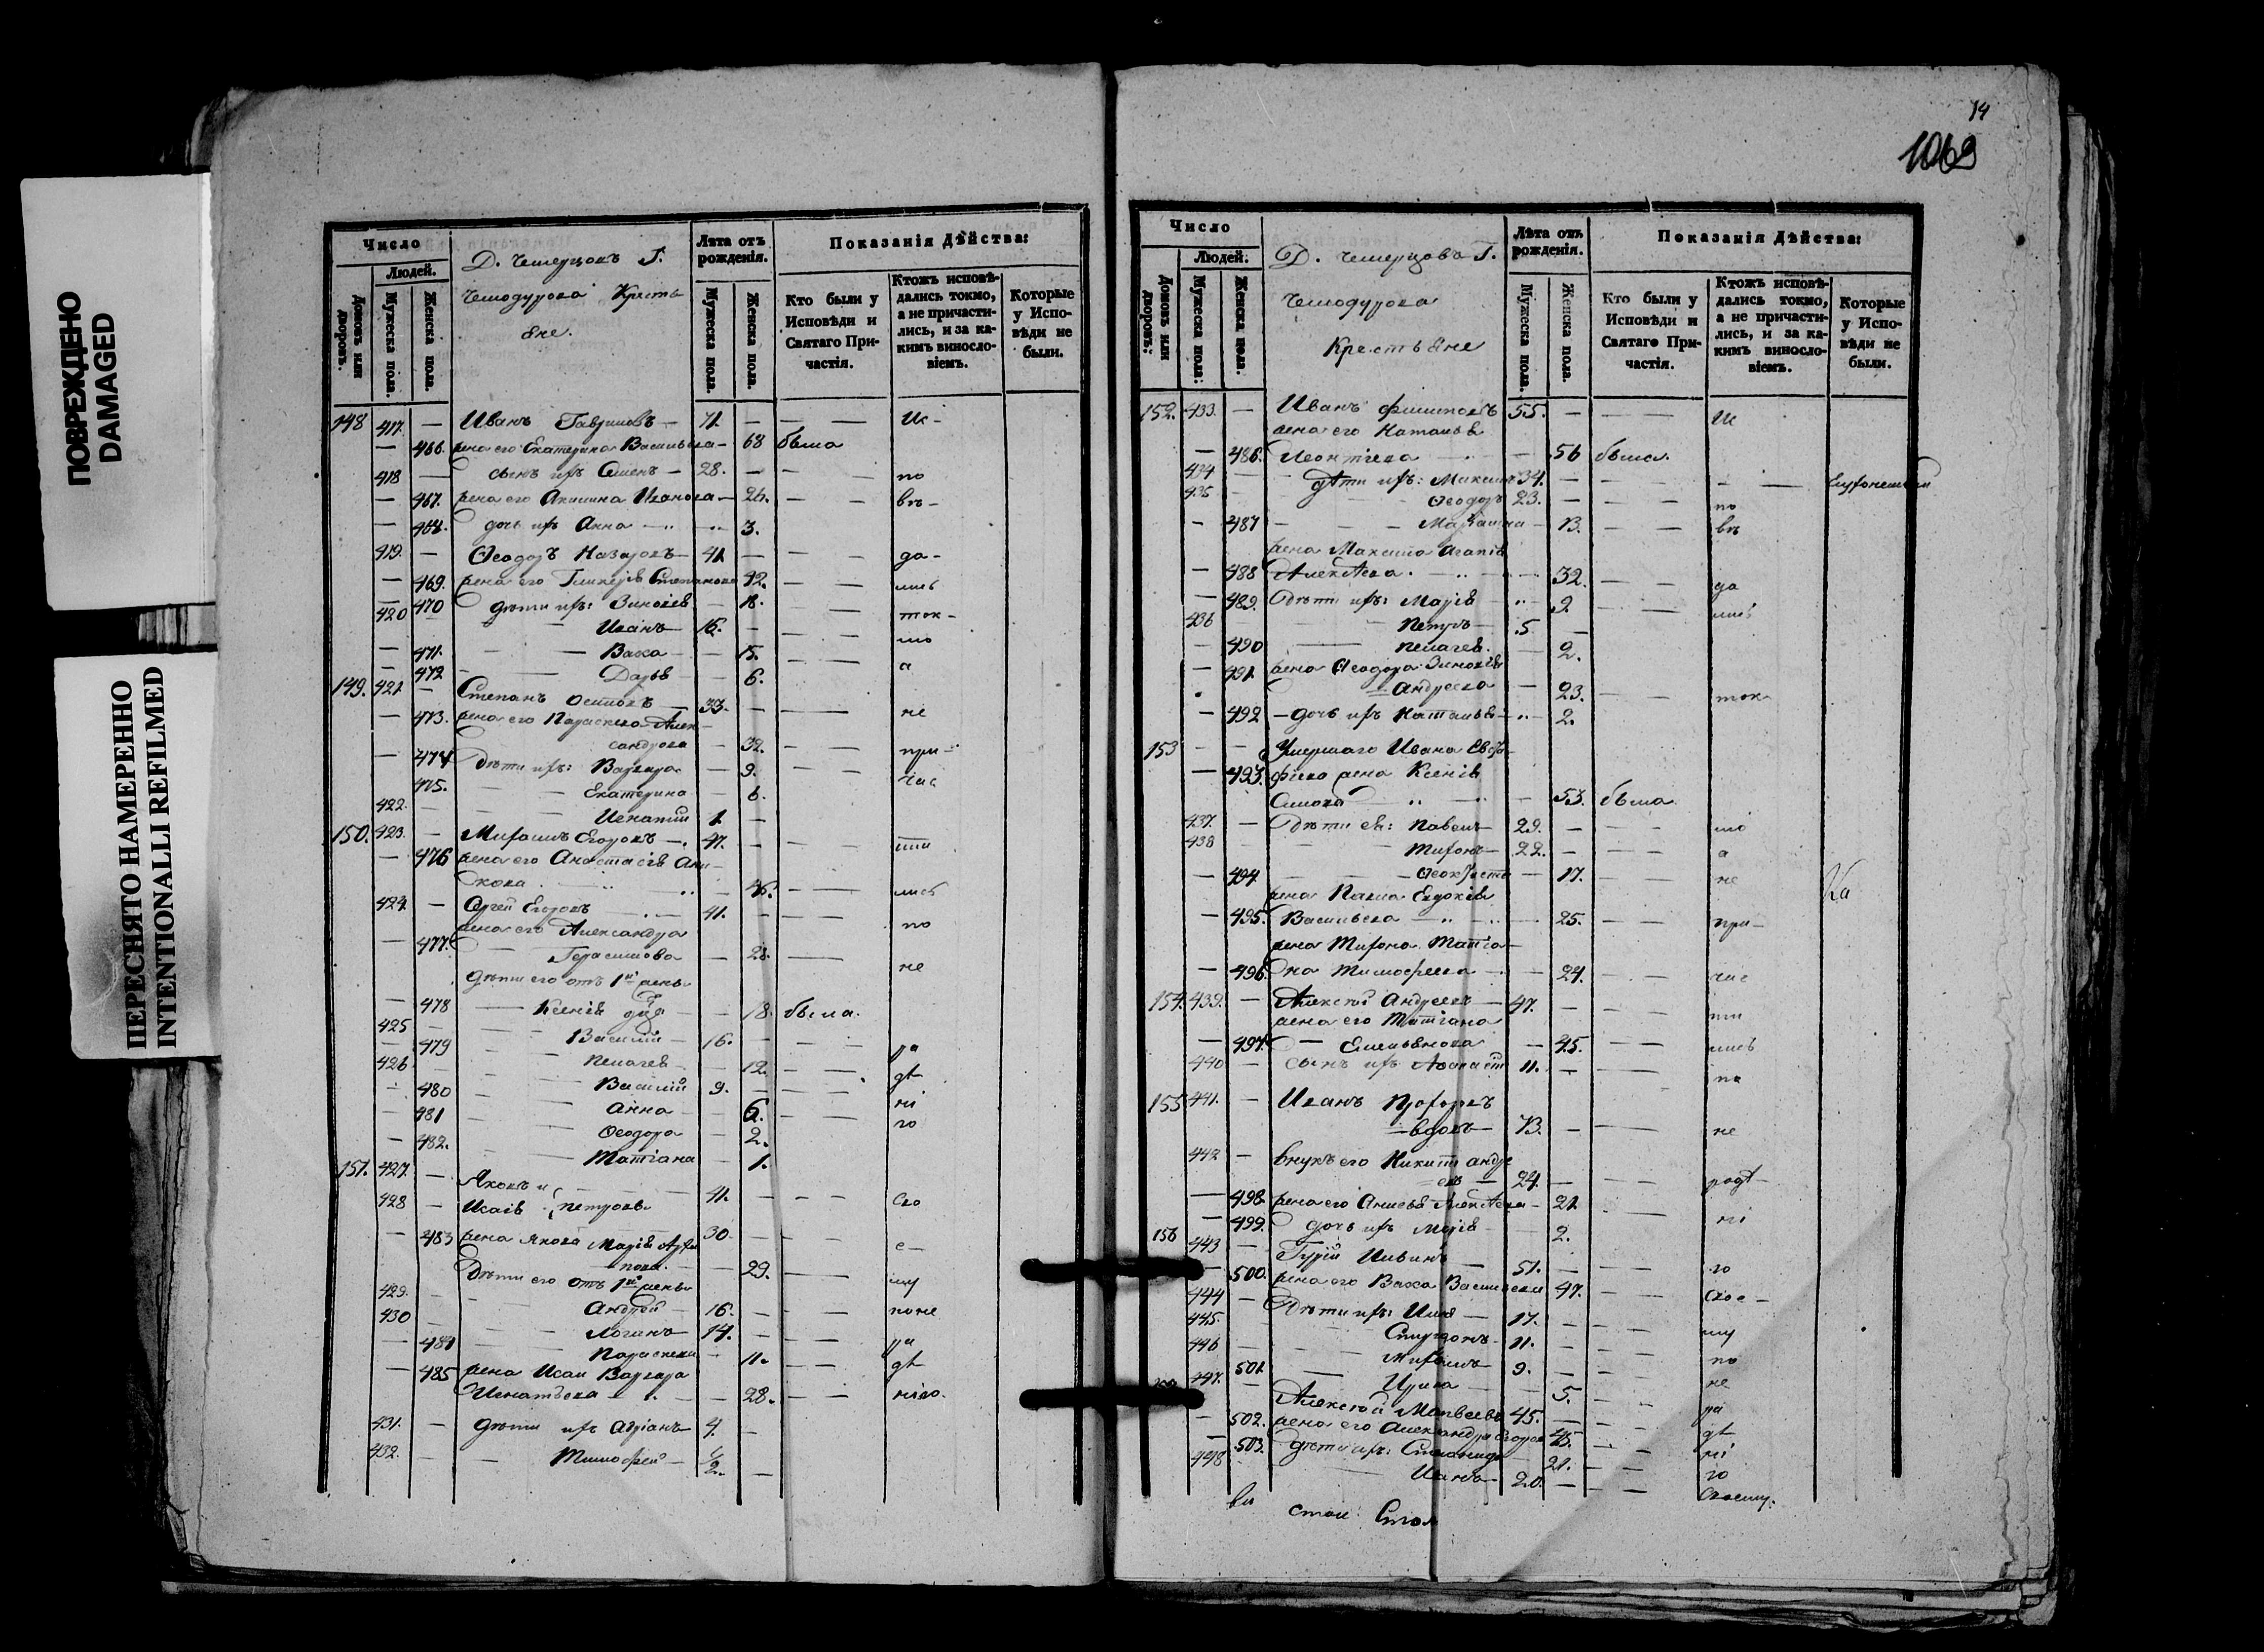 ПОВРЕЖДЕНО
DAMAGED
ПЕРЕСНЯТО НАМЕРЕННО
INTENTIONALLI REFILMED
Число
Людей.
Домовъ или дворовъ.
Мужеска пола.
Женска пола.
Д. Чемерцовъ Г.
Чемодурова Кресть
яне.
Лѣта отъ рожденія.
Мужеска пола.
Женска пола.
Показанія Дѣйства:
Кто были у Исповѣди и Святаго Причастія.
Ктожъ исповѣдались токмо, а не причастились, и за какимъ винословіемъ.
Которые у Исповѣди не были.
148 417. — Иванъ Гавриловъ — 71. — — — Ис-
— 466. жена его Екатерина Васильева — 68 была
418 — сынъ ихъ Семенъ — 28. — — — по
— 467. жена его Акилина Иванова — 26. — — вѣ-
— 468. дочь ихъ Анна — 3.
419. — Ѳеодоръ Назаровъ — 41. — — — да-
— 469. жена его Гликерія Степанова 42. — — лись
— 470 дѣти ихъ: Зиновія — 18. — — ток-
420 — Иванъ — 16. — — — мо
— 471. — Васса — 15. — — а
— 472 — Дарья — 6.
149. 421. — Степанъ Осиповъ — 33. — — — не
— 473. жена его Параскева Алек-
сандрова — 32. — — при-
— 474 Дѣти ихъ: Варвара — 9. — — час
475. — Екатерина — 6.
422. — — Игнатій 1. —
150. 423. — Михаилъ Егоровъ — 47. — — — ти
— 476 жена его Анастасія
— 46. — — лись
424. — Сергей Егоровъ — 41. — по
жена его Александра
— 477. — Герасимова — 28. — не
Дѣти его отъ 1й жены
— 478 — Ксенія дѣв — 18. была.
425 — — Василій — 16. — — — ра
— 479 — Пелагея — 12. — — дѣ
426 — — Василій 9. — — — ні
— 480 — Анна — 6. — — го
— 481 — Ѳеодора — 2.
— 482. — Татіана — 1.
151. 427. — Яковъ и — 41. — — — Сво
428 — Исаія Петровы 30 — е-
— 483 жена Якова Марія
— 29. — му
Дѣти его отъ 1й жены
429. — — Андрей — 16. — — — по не
430 — — Логинъ — 14. — — ра
— 484 — Параскева — 11. — — дѣ
— 485 жена Исаи Варвара
Игнатьева — 28. — — нію.
431. — дѣти ихъ Адріанъ 4. —
432. — — Тимофей — 1/2. —
14
1069
Число
Людей.
Домовъ или дворовъ:
Мужеска пола:
Женска пола.
Д. Чемерцовъ Г.
Чемодурова
Крестьяне
Лѣта отъ рожденія.
Мужеска пола.
Женска пола.
Показанія Дѣйства:
Кто были у Исповѣди и Святаго Причастія.
Ктожъ исповѣдались токмо, а не причастились, и за какимъ винословіемъ.
Которые у Исповѣди не были.
152. 433. — Иванъ Филиповъ 55. — — — Ис
жена его Наталья
— 486. Леонтіева — 56 была.
434 — дѣти ихъ: Максимъ 34. — — —
435 — — Ѳеодоръ 23. — — — по
— 487 — — 13. — — вѣ
жена Максима Агапія
— 488 Алексѣева. — 32. — — да
— 489. Дѣти ихъ: Марія — 9 — — лись
436 — — Петръ — 5 —
— 490 — Пелагея. — 2.
— 491. жена Ѳеодора Зиновія
Андреева — 23. — — ток
— 492 — дочь ихъ Наталья — 2.
153 — — Умершаго Ивана
— 493. жена Ксенія
— 53. была.
437. — Дѣти ея: Павелъ — 29. — — — мо
438 — — Тихонъ — 22. — — — а
— 494 — Ѳеоктиста — 17. — — не
жена Павла Евдокія
— 495. Васильева — 25. — — при-
жена Тихона Татіа-
— 496. на Тимофеева — 24. — — час
154. 439. — Алексей Андреевъ — 47. — — — ти
жена его Татіана
— 497. — Емельянова — 45. — — лись
440 — сынъ ихъ 11. — — — по
155 441. — Иванъ Прохоровъ
— вдовъ — 73. — — не
442 — внукъ его Никита Андре
евъ — 24. — — радѣ-
— 498. жена его Анисья Алексѣева — 21
— 499. дочь ихъ Марія — 2. ні
156 443 — Гурій Ильинъ — 51. — — — го
— 500. жена его Васса Васильева 47. — — Свое-
444 — Дѣти ихъ: Илья — 17. — — — му
445. — — Спиридонъ — 11. — — — по
446 — — Михаилъ 9. — — — не
501. — Ирина — 5. ра
447. — Алексей Матвеевъ 45. — — — дѣ
— 502. жена его Александра Егорова 45. — — ні
— 503. дѣти ихъ: Степанида 21. — — го
448 — Иванъ — 20. — — — Своему.